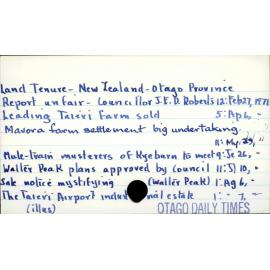 Land Tenure - New Zealand - Otago Province
Report unfair - Councillor J.E.D. Roberts 12: Feb 27, 1971
Leading Taieri farm sold 5: Ap 6, "
Mavora farm settlement big undertaking.
11: My. 29, "
Mule-train musterers of Kyeburn to meet 9: Je 26, "
Walter Peak plans approved by Council 11: Jl 10, "
Sale notice mystifying (Walter Peak) 1: Ag 6, "
The Taieri Airport industrial estate 1: " 7, "
(illus) OTAGO DAILY TIMES